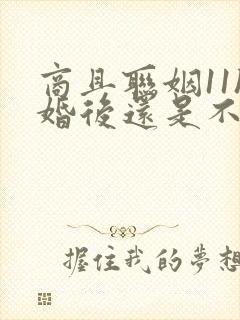 商且聯姻11
婚後還是不
握住我的夢想